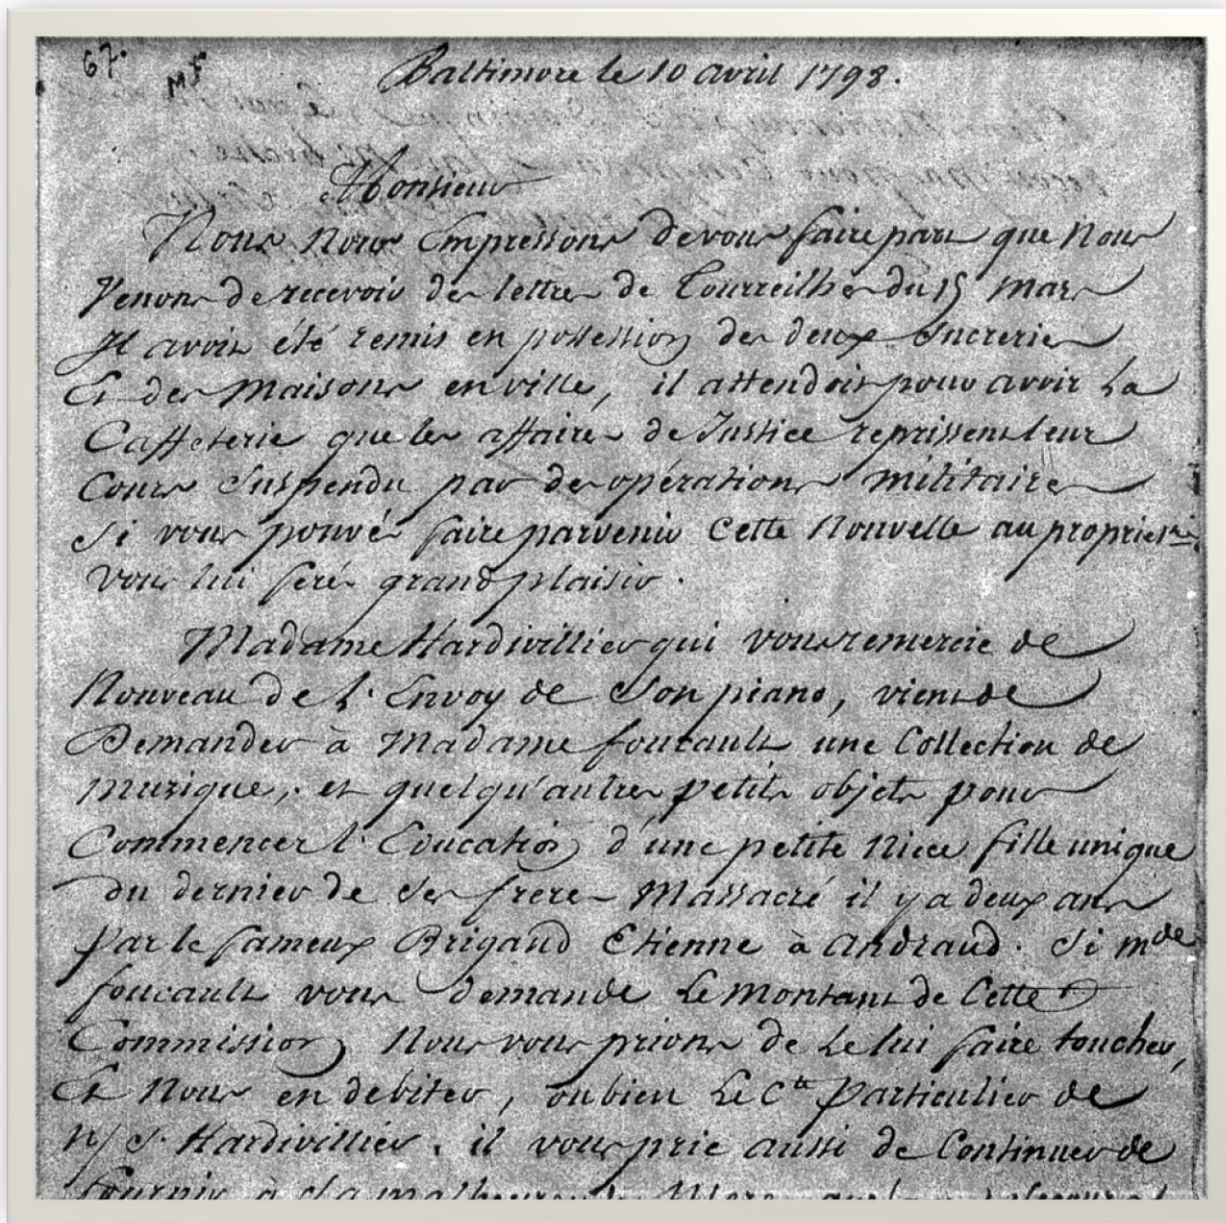 67.
MF
Baltimore le 10 avril 1798.
Monsieur
Nous Nous Empressons de vous faire part que Nous
Venons de recevoir des lettres de Tourreilhes du 15 Mars
Il avoit été remis en possession des deux Sucreries
Et des Maisons en ville, il attendoit pour avoir La
Caffeterie que les affaires de Justice reprissent leur
Cours Suspendu par des opérations militaires
Si vous pouvés faire parvenir Cette Nouvelle au propriet.re
vous lui ferés grand plaisir.
Madame Hardivillier qui vous remercie de
Nouveau de l'Envoy de Son piano, vient de
Demander à Madame foucault une Collection de
musique, et quelqu'autres petits objets pour
Commencer l'Education d'une petite Niece fille unique
du dernier de Ses freres Massacré il y a deux ans
Par le fameux Brigand Etienne à andraud. Si mde
foucault vous demande Le Montant de Cette
Commission Nous vous prions de Le lui faire toucher,
Et Nous en debiter, ou bien Le Cte Particulier de
N/ S. Hardivillier. il vous prie aussi de Continuer de
fournir à Sa malheureuse